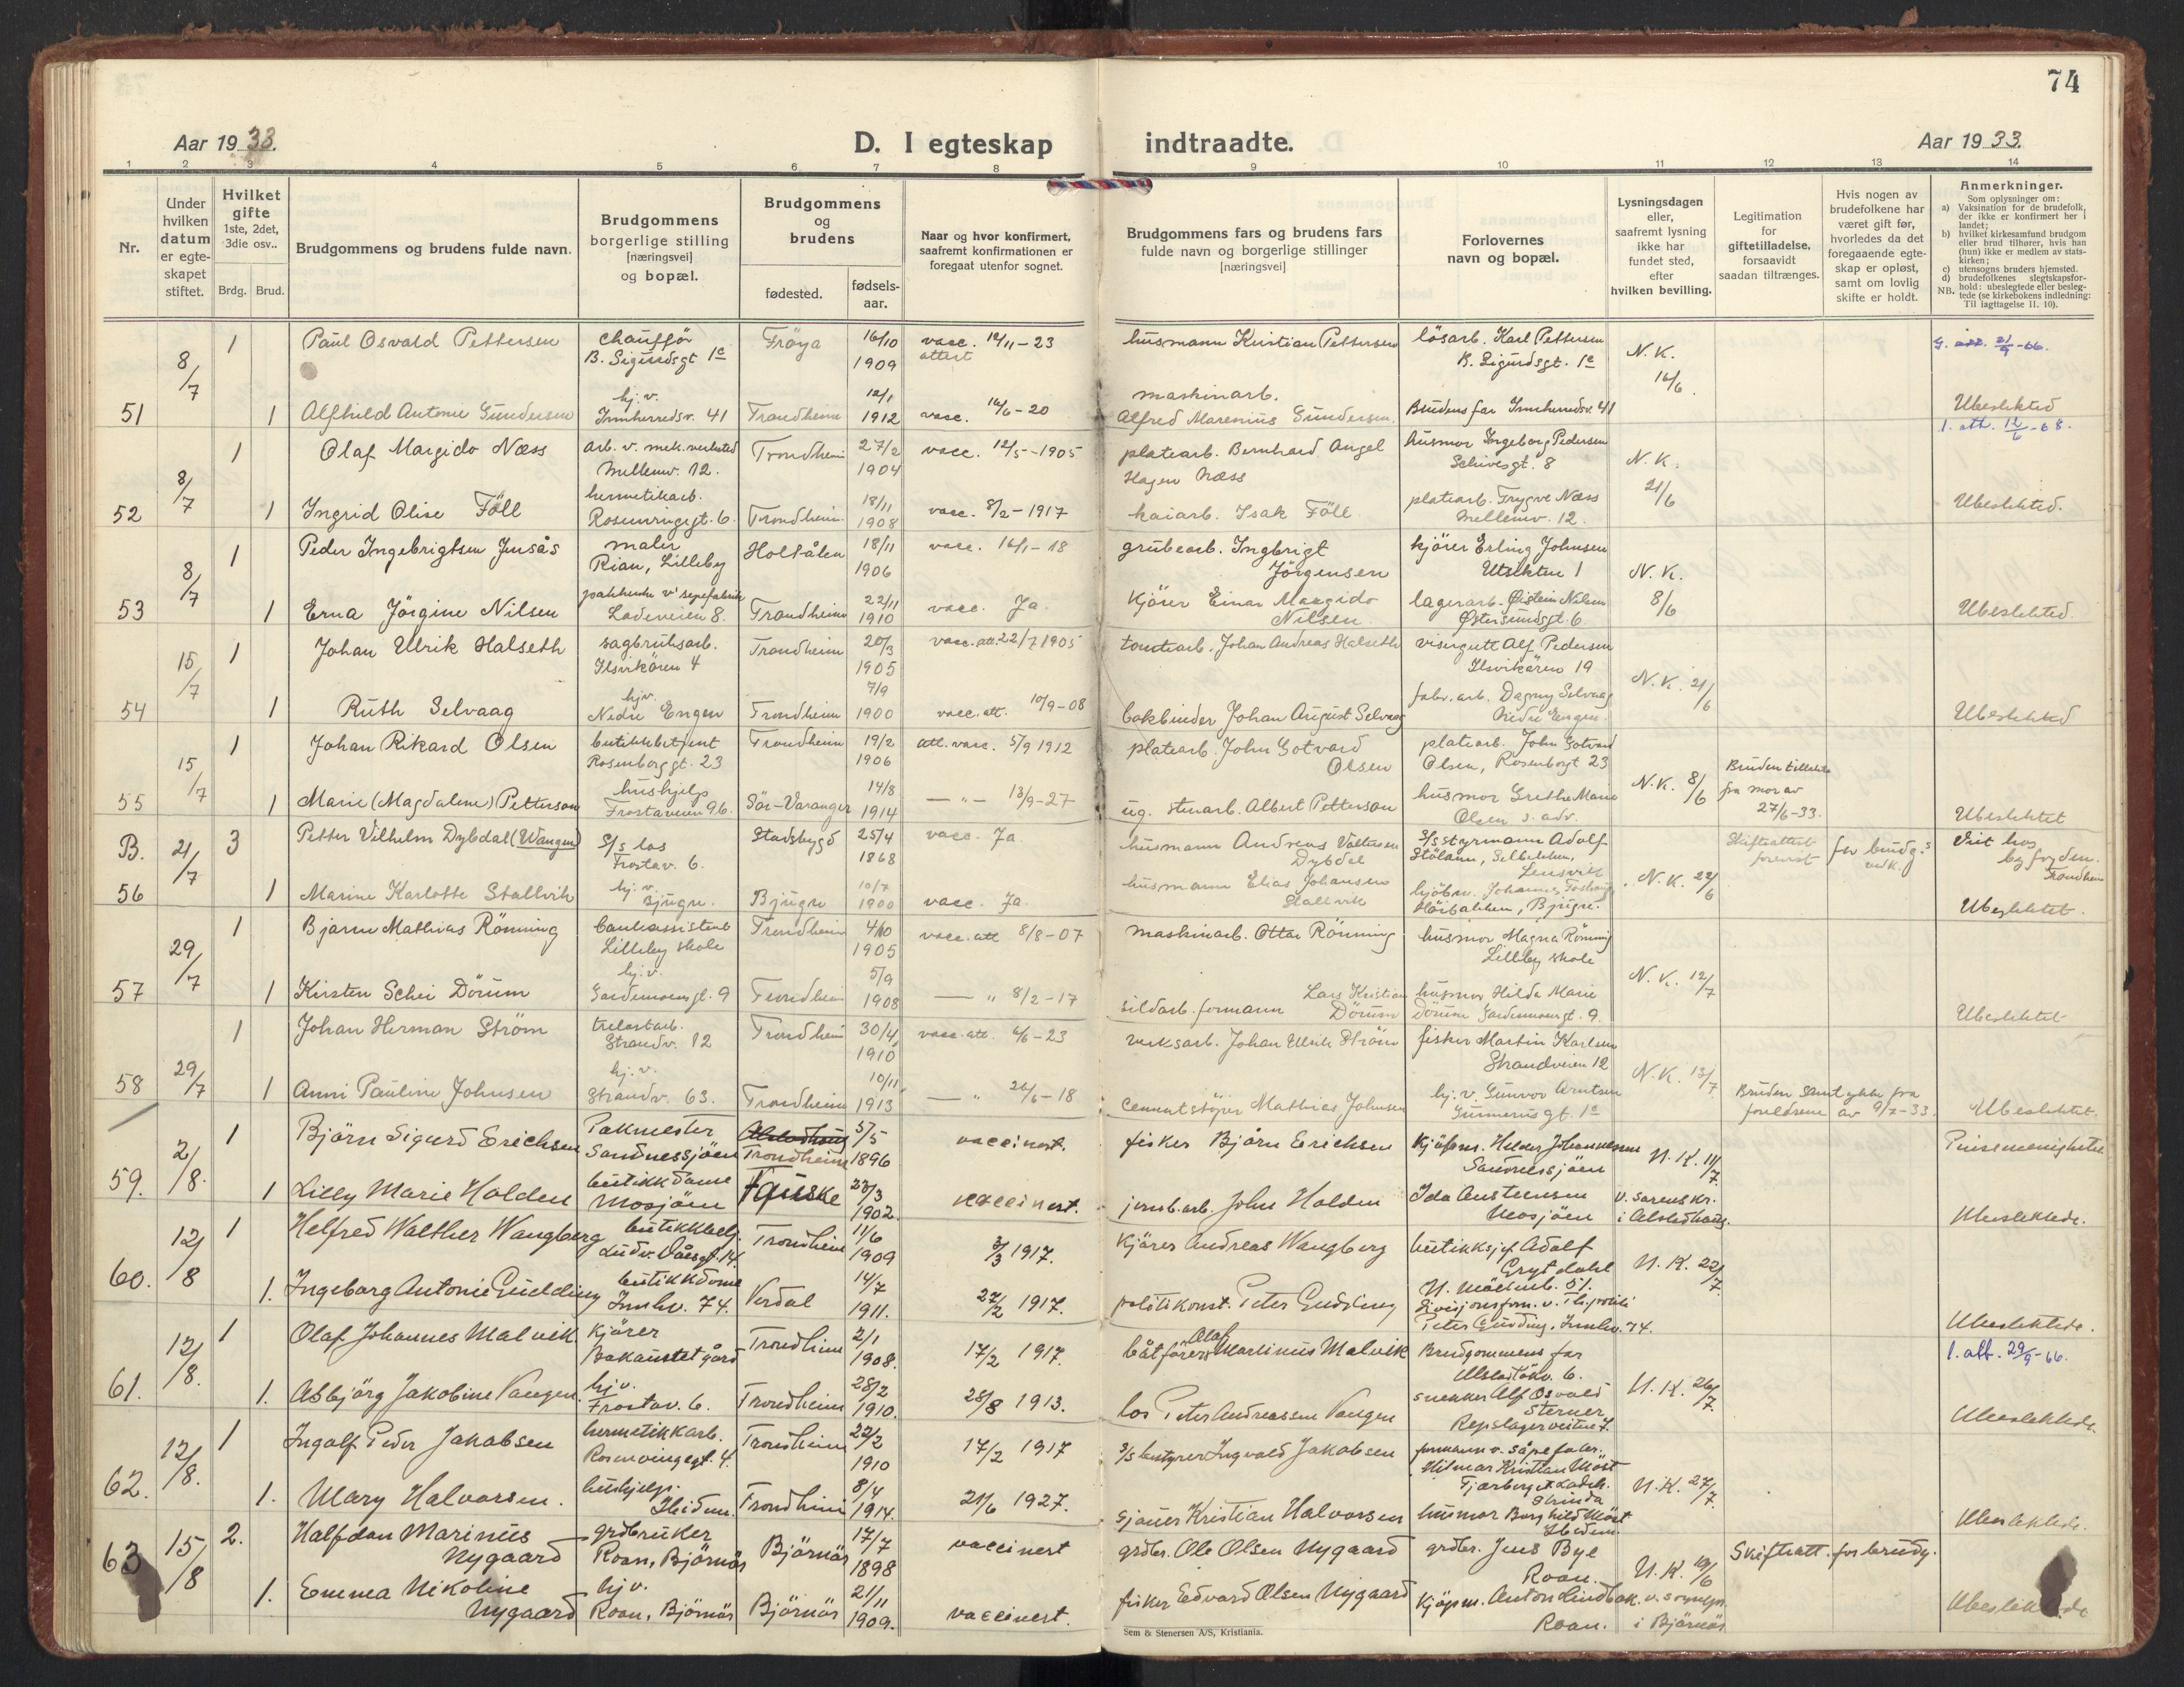 74
Aar 1933.
D. I egteskap indtraadte.
Aar 1933.
1 2 3 4 5 6 7 8 9 10 11 12 13 14
Nr.
Under hvilken datum er egte-skapet stiftet.
Hvilket gifte 1ste, 2det, 3die osv..
Brdg. Brud.
Brudgommens og brudens fulde navn.
Brudgommens borgerlige stilling [næringsvei] og bopæl.
Brudgommens og brudens
fødested.
fødsels-aar.
Naar og hvor konfirmert, saafremt konfirmationen er foregaat utenfor sognet.
Brudgommens fars og brudens fars fulde navn og borgerlige stillinger [næringsvei]
Forlovernes navn og bopæl.
Lysningsdagen eller, saafremt lysning ikke har fundet sted, efter hvilken bevilling.
Legitimation for giftetilladelse, forsaavidt saadan tiltrænges.
Hvis nogen av brudefolkene har været gift før, hvorledes da det foregaaende egte-skap er opløst, samt om lovlig skifte er holdt.
Anmerkninger.
Som oplysninger om:
a) Vaksination for de brudefolk, der ikke er konfirmert her i landet;
b) hvilket kirkesamfund brudgom eller brud tilhører, hvis han (hun) ikke er medlem av stats-kirken;
c) utensogns bruders hjemsted.
d) brudefolkenes slegtskapsfor-hold: ubeslegtede eller besleg-tede (se kirkebokens indledning: Til iagttagelse II. 10).
NB.
51 8/7 1 Paul Osvald Pettersen chauffør B. Sigurdsgt 1c Frøya 16/10 1909 vacc. attest 12/11-23 husmann Kristian Pettersen løsarb. Karl Pettersen B. Sigurdsgt. 1c N.K. 16/6
1 Alfhild Antonie Gundersen hj.v. Innherredsv. 41 Trondheim 12/1 1912 vacc. 14/6-20 maskinarb. Alfred Marenius Gundersen. Brudens far Innherredsv. 41 Ubeslekted
1. att. 12/6-68.
52 8/7 1 Olaf Margido Næss arb. v. mek. verksted Mellemv. 12. Trondheim 27/2 1904 vacc. 12/5-1905 platearb. Bernhard Angel Hagen Næss husmor Ingeborg Pedersen Schivesgt. 8 N.K. 21/6
1 Ingrid Olise Föll hermetikarb. Rosenvinge gt. 6 Trondheim 18/11 1908 vacc. 8/2-1917 kaiarb. Isak Föll platearb. Trygve Næss Mellemv. 12. Ubeslektet.
53 8/7 1 Peder Ingebrigtsen Jensås maler Rian, Lilleby Holtålen 18/11 1906 vacc. 16/1-18 grubearb. Ingbrigt Jörgensen kjører Erling Johnsen Utsikten 1 N.K. 8/6
1 Erna Jörgine Nilsen Ladeveien 8. Trondheim 22/11 1910 vacc. Ja. Kjörer Einar Margido Nilsen lagerarb. Øistein Nilsen Østersundsgt. 6 Ubeslektet.
54 15/7 1 Johan Ulrik Halseth sagbruksarb. Ilsvikören 4 Trondheim 20/3 1905 vacc. att. 22/7 1905 tomtearb. Johan Andreas Halseth visergutt Alf Pedersen Ilsvikören 19 N.K. 21/6
1 Ruth Selvaag hjv. Nedre Engen Trondheim 7/9 1900 vacc. att. 10/9-08 bokbinder Johan August Selvaag fabr. arb. Dagny Selvaag Nedre Engen Ubeslektet
55 15/7 1 Johan Rikard Olsen butikkbetjent Rosenborg gt. 23 Trondheim 19/2 1906 att. vacc. 5/9 1912 platearb. John Gotvard Olsen platearb. John Gotvard Olsen, Rosenborgt 23 N.K. 8/6
1 Marie (Magdalene) Petterson hushjelp Frostaveien 96. Sör-Varanger 14/8 1914 — " — 13/9-27 ug. stuarb. Albert Petterson husmor Grethe Marie Olsen s. adr. Bruden tillatelse fra mor av 27/6-33. Ubeslektet
B. 56 21/7 3 Petter Vilhelm Dybdal (Wangen) S/s los Frostav. 6. Stadsbygd 25/4 1868 vacc. Ja husmann Andreas Valtersen Dybdal S/s styrmann Adolf Stölann, Lensvik N.K. 22/6 Skifteattest forevist for brudg.s vedk. Viet hos byfogden Trondheim
1 Marine Karlotte Stallvik hj.v. Bjugn. Bjugn 10/7 1900 vacc. Ja. husmann Elias Johansen Stallvik Bjugn. Ubeslektet.
57 29/7 1 Bjarne Mathias Rönning bankassistent Lilleby skole Trondheim 4/10 1905 vacc. att 8/8-07 maskinarb. Ottar Rönning husmor Magna Rönning Lilleby skole N.K. 12/7
1 Kirsten Schei Dörum hj.v. Gardemoensgt. 9 Trondheim 5/9 1908 — " 8/2-17 sildarb. formann Lars Kristian Dörum husmor Hilda Marie Dörum Gardemoensgt. 9. Ubeslektet
58 29/7 1 Johan Herman Ström trelastarb. Strandv. 12 Trondheim 30/4 1910 vacc. att. 6/6-23 verksarb. Johan Ulrik Ström fisker Martin Karlsen Strandveien 12 N.K. 13/7
1 Anni Pauline Johnsen hj.v. Strandv. 63. Trondheim 10/11 1913 — " 26/6-18 cementstöper Mathias Johnsen hj.v. Gunvor Arntsen Gunnerusgt. 1c Bruden samtykke fra foreldrene av 9/7-33. Ubeslektet.
59. 2/8. 1 Björn Sigurd Erichsen Pakmester Sandnessjöen Trondheim 5/5 1896 vaccinert. fisker Björn Erichsen Kjöpm. Johannesen Sandnessjöen N.K. 11/7. Pinsemenigheten
1 Lilly Marie Holden butikkdame Mosjöen Fauske 23/3 1902. vaccinert. jernb.arb. John Holden Ida Austensen Mosjöen i Alstadhaug. Ubeslektede.
60. 12/8 1 Helfred Walther Wangberg butikkbetj. Ludv. Daaesgt. 14. Trondheim 11/6 1909 3/3 1917. Kjörer Andreas Wangberg butikksjef Adolf Grytdahl N. Möllenb. 51. N.K. 22/7.
1. Ingeborg Antonie Gudding butikkdame Innhv. 74. Verdal 14/7 1911. 27/2 1917. politikonst. Peter Gudding Peter Gudding, Innhv. 74. Ubeslektede.
61. 12/8. 1 Olaf Johannes Malvik Kjörer Bakaunet gård Trondheim 2/1 1908. 17/2 1917. båtförer Olaf Martinius Malvik Brudgommens far N.K. 26/7. 1. att. 29/9-66.
1. Asbjörg Jakobine Vangen. hj.v. Frostav. 6. Trondheim 28/2 1910. 28/8 1913. los Peter Andreassen Vangen snekker Alf Osvald Sterner Repslagerveiten 7. Ubeslektede.
62. 12/8. 1 Ingolf Peder Jakobsen hermetikkarb. Rosenvingegt. 4. Trondheim 22/2 1910 17/2 1917 S/s bestyrer Ingvald Jakobsen formann v. såpefabr. Hilmar Kristian Möst Strinda N.K. 27/7.
1. Mary Halvorsen. hushjelp. Trondheim 8/4 1914. 21/6 1927. sjauer Kristian Halvorsen husmor Borghild Möst Ubeslektede.
63 15/8 2. Halfdan Marinius Nygaard grdbruker Roan, Björnör Björnör 17/7 1898 vaccinert grdbr. Ole Olsen Nygaard grdbr. Jens Bye Roan. N.K. 19/6 Skifteatt. for brudg.
1. Emma Nikoline Nygaard hjv. Roan, Björnör Björnör 21/11 1909. vaccinert. fisker Edvard Olsen Nygaard Kjöpm. Anton Lindbak Roan. i Björnör Ubeslektede
Sem & Stenersen A/S, Kristiania.